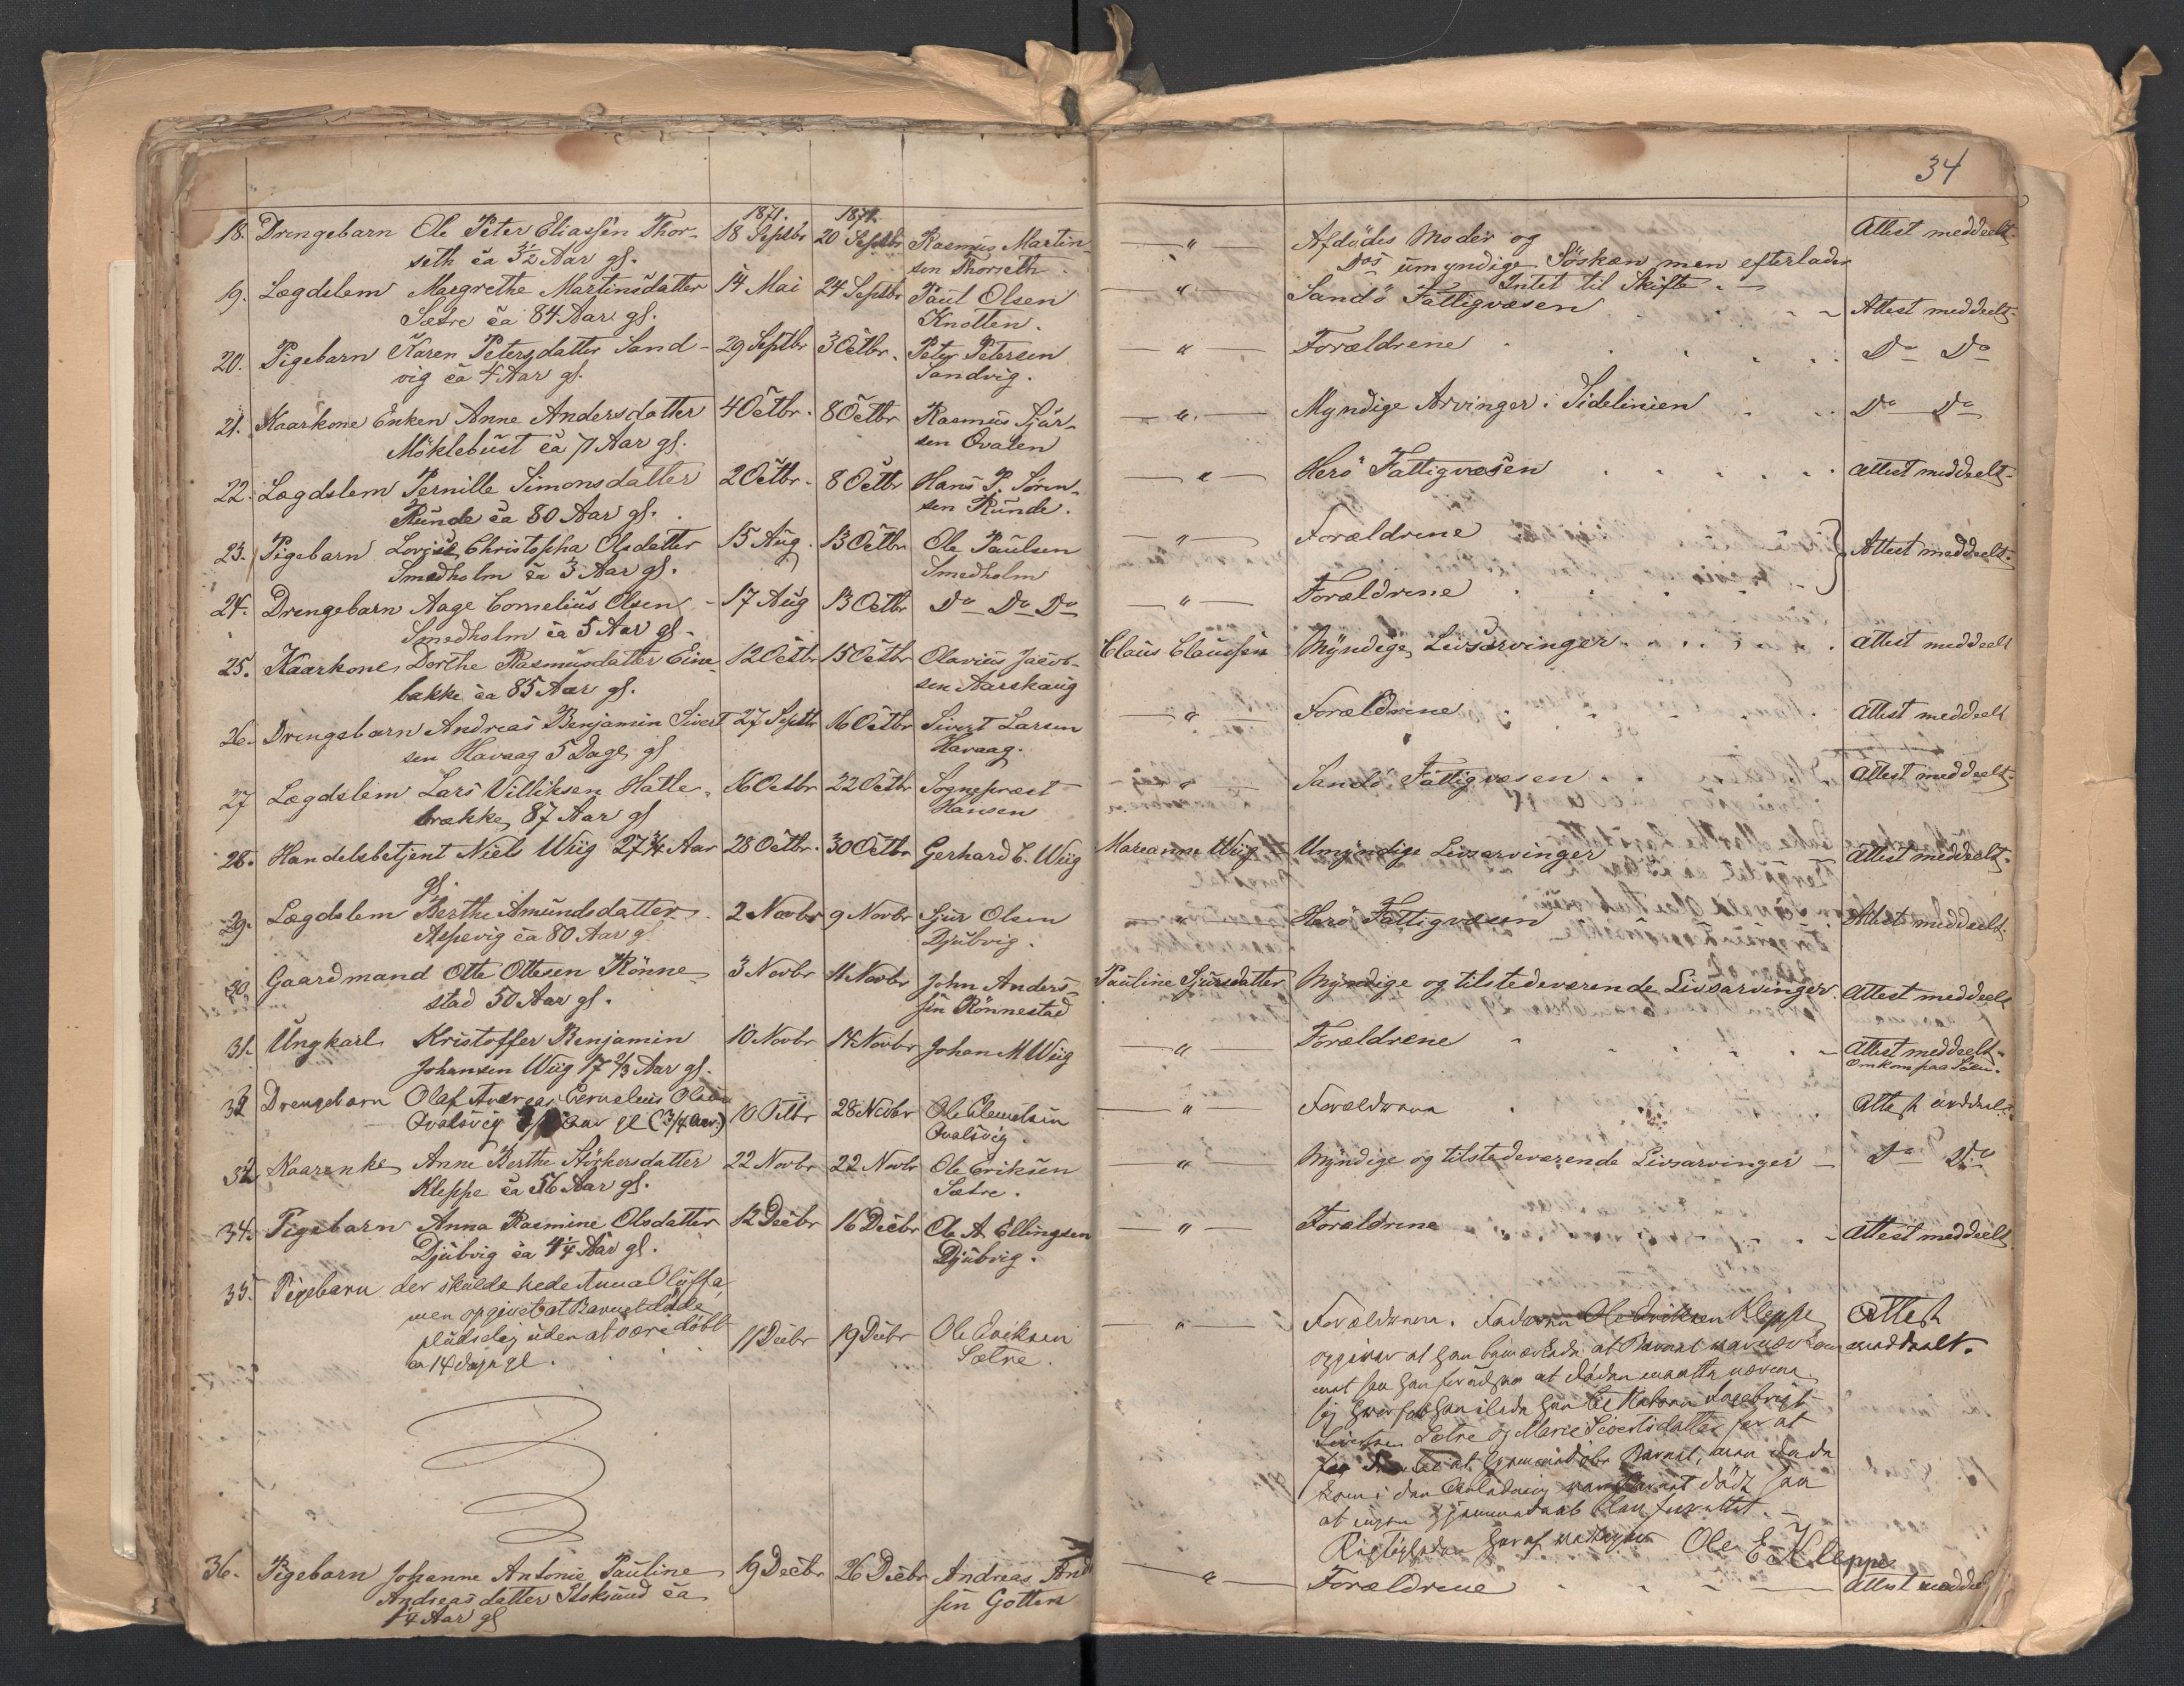 34
1871. 1871.
18. Drengebarn Ole Peter Eliassen Thor- 18 Septbr 20 Septbr Rasmus Martin- —„— Afdødes Moder og Attest meddeelt.
seth ca 3½ Aar gl. sen Thorseth Dos umyndige Söskæn men efterlader
Intet til Skifte. —
19. Lægdslem Margrethe Martinsdatter 14 Mai 24 Septbr Paul Olsen —„— Sandö Fattigvæsen Attest meddeelt.
Sætre ca 84 Aar gl. Knotten.
20. Pigebarn Karen Petersdatter Sand- 29 Septbr 3 Octbr. Peter Petersen —„— Forældrene Do Do
vig ca 4 Aar gl. Sandvig.
21. Kaarkone Enken Anne Andersdatter 4 Octbr. 8 Octbr Rasmus Sjur- —„— Myndige Arvinger i Sidelinien Do Do
Möklebust ca 71 Aar gl. sen Ovalen
22. Lægdslem Pernille Simonsdatter 2 Octbr. 8 Octbr Hans P. Sören- —„— Herö Fattigvæsen Attest meddeelt.
Runde ca 80 Aar gl. sen Runde.
23. Pigebarn Lovise Christopha Olsdatter 15 Aug. 13 Octbr Ole Paulsen —„— Forældrene Attest meddeelt.
Smedholm ca 3 Aar gl. Smedholm
24. Drengebarn Aage Cornelius Olsen 17 Aug 13 Octbr Do Do Do —„— Forældrene
Smedholm ca 5 Aar gl.
25. Kaarkone Dorthe Rasmusdatter Eine- 12 Octbr 15 Octbr Olavius Jacob- Claus Claussen Myndige Livsarvinger Attest meddeelt
bakke ca 85 Aar gl. sen Aarskaug
26. Drengebarn Andreas Benjamin Sivert 27 Septbr 16 Octbr Sivert Larsen —„— Forældrene Attest meddeelt
sen Havaag 5 Dage gl Havaag.
27 Lægdslem Lars Villiksen Hatle- 16 Octbr 22 Octbr Sognepræst —„— Sandö Fattigvæsen Attest meddeelt.
brække, 87 Aar gl Hansen
28. Handelsbetjent Niels Wiig 27¾ Aar 28 Octbr. 30 Octbr Gerhard C. Wiig Mareanne Wiig Umyndige Livsarvinger Attest meddeelt.
gl.
29. Lægdslem Berthe Amundsdatter 2 Novbr 9 Novbr Sjur Olsen —„— Herö Fattigvæsen Attest meddeelt.
Aspevig ca 80 Aar gl Djubvig.
30. Gaardmand Otte Ottesen Rönne- 3 Novbr 11 Novbr John Anders- Pauline Sjursdatter Myndige og tilstedeværende Livsarvinger Attest meddeelt
stad 50 Aar gl. sen Rönnestad
31. Ungkarl Kristoffer Benjamin 10 Novbr 14 Novbr Johan M Wiig —„— Forældrene Attest meddeelt.
Johansen Wiig 17 2/3 Aar gl. Omkom paa Söen.
32 Drengebarn Olaf Andreas Cornelius Olsen 10 Octbr 28 Novbr Ole Clemetsen —„— Forældrene Attest meddeelt
Ovalsvig Aar gl (¾ Aar) Ovalsvig.
32 Kaarenke Anne Berthe Störkersdatter 22 Novbr 22 Novbr Ole Eriksen —„— Myndige og tilstedeværende Livsarvinger — Do Do
Kleppe ca 56 Aar gl. Sætre.
34. Pigebarn Anna Rasmine Olsdatter 12 Decbr 16 Decbr Ole A. Ellingsen —„— Forældrene Attest meddeelt
Djubvig ca 4¼ Aar gl. Djubvig.
35. Pigebarn der skulde hede Anna Oluffa,
men opgivet at Barnet döde
pludselig uden at være döbt 11 Decbr 19 Decbr Ole Eriksen —„— Forældrene. Faderen Ole Eriksen Kleppe Attest
ca 14 dage gl. Sætre. opgiver at han bemærkede at Barnet var meddeelt.
saa han forudsaa at Döden maatte nærme
sig hvorfor han ilede
Sivertsen Sætre og Marie Sivertsdatter for at
at hjemmedöbe Barnet, men da de
kom i den Anledning var Barnet dödt saa
at ingen Hjemmedaab blev forrettet.
Rigtigheden heraf Ole E Kleppe
36. Pigebarn Johanne Antonie Pauline 19 Decbr 26 Decbr Andreas And —„— Forældrene Attest meddeelt
Andreasdatter Stoksund ca sen Gotten
¼ Aar gl